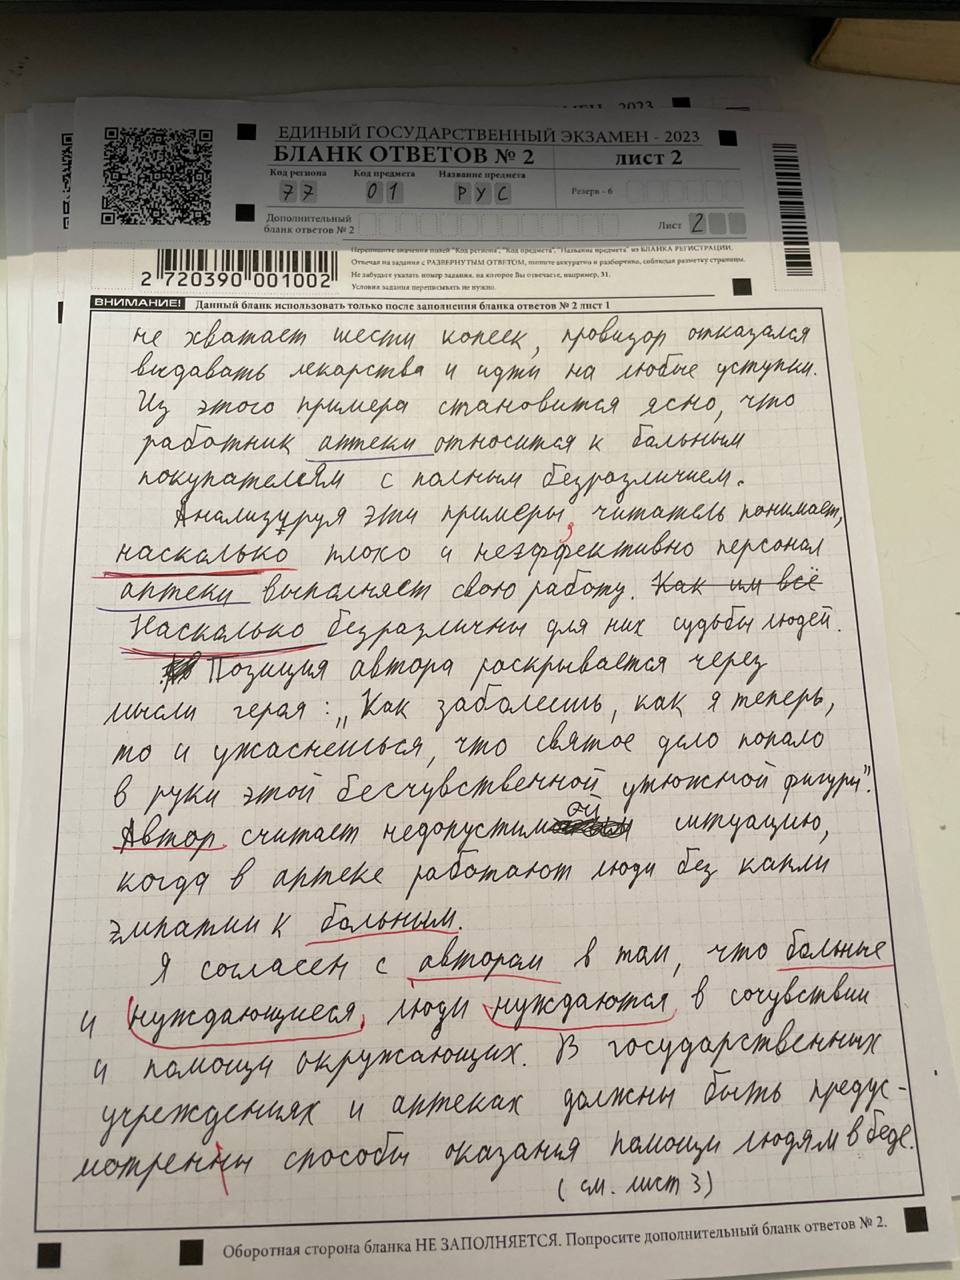 МЕН - 2023
ЕДИНЫЙ ГОСУДАРСТВЕННЫЙ ЭКЗАМЕН - 2023
БЛАНК ОТВЕТОВ № 2 ЛИСТ 2
Код региона Код предмета Название предмета
77 01 РУС Резерв - 6
Дополнительный бланк ответов № 2 Лист 2
Перепишите значения полей "Код региона", "Код предмета", "Название предмета" из БЛАНКА РЕГИСТРАЦИИ.
Отвечая на задания с РАЗВЕРНУТЫМ ОТВЕТОМ, пишите аккуратно и разборчиво, соблюдая разметку страницы.
Не забудьте указать номер задания, на которое Вы отвечаете, например, 31.
Условия задания переписывать не нужно.
2 720390 001002
ВНИМАНИЕ! Данный бланк использовать только после заполнения бланка ответов № 2 лист 1
не хватает шести копеек, провизор отказался
выдавать лекарства и идти на любые уступки.
Из этого примера становится ясно, что
работник аптеки относится к больным
покупателям с полным безразличием.
Анализируя эти примеры, читатель понимает,
насколько плохо и неэффективно персонал
аптеки выполняет свою работу. Как им всё
Насколько безразличны для них судьбы людей.
Позиция автора раскрывается через
мысли героя: „Как заболешь, как я теперь,
то и ужаснешься, что святое дело попало
в руки этой бесчувственной утюжной фигуры".
Автор считает недопустимой ситуацию,
когда в аптеке работают люди без капли
эмпатии к больным.
Я согласен с автором в том, что больные
и нуждающиеся люди нуждаются в сочувствии
и помощи окружающих. В государственных
учреждениях и аптеках должны быть предус-
мотренны способы оказания помощи людям в беде.
(см. лист 3)
Оборотная сторона бланка НЕ ЗАПОЛНЯЕТСЯ. Попросите дополнительный бланк ответов № 2.